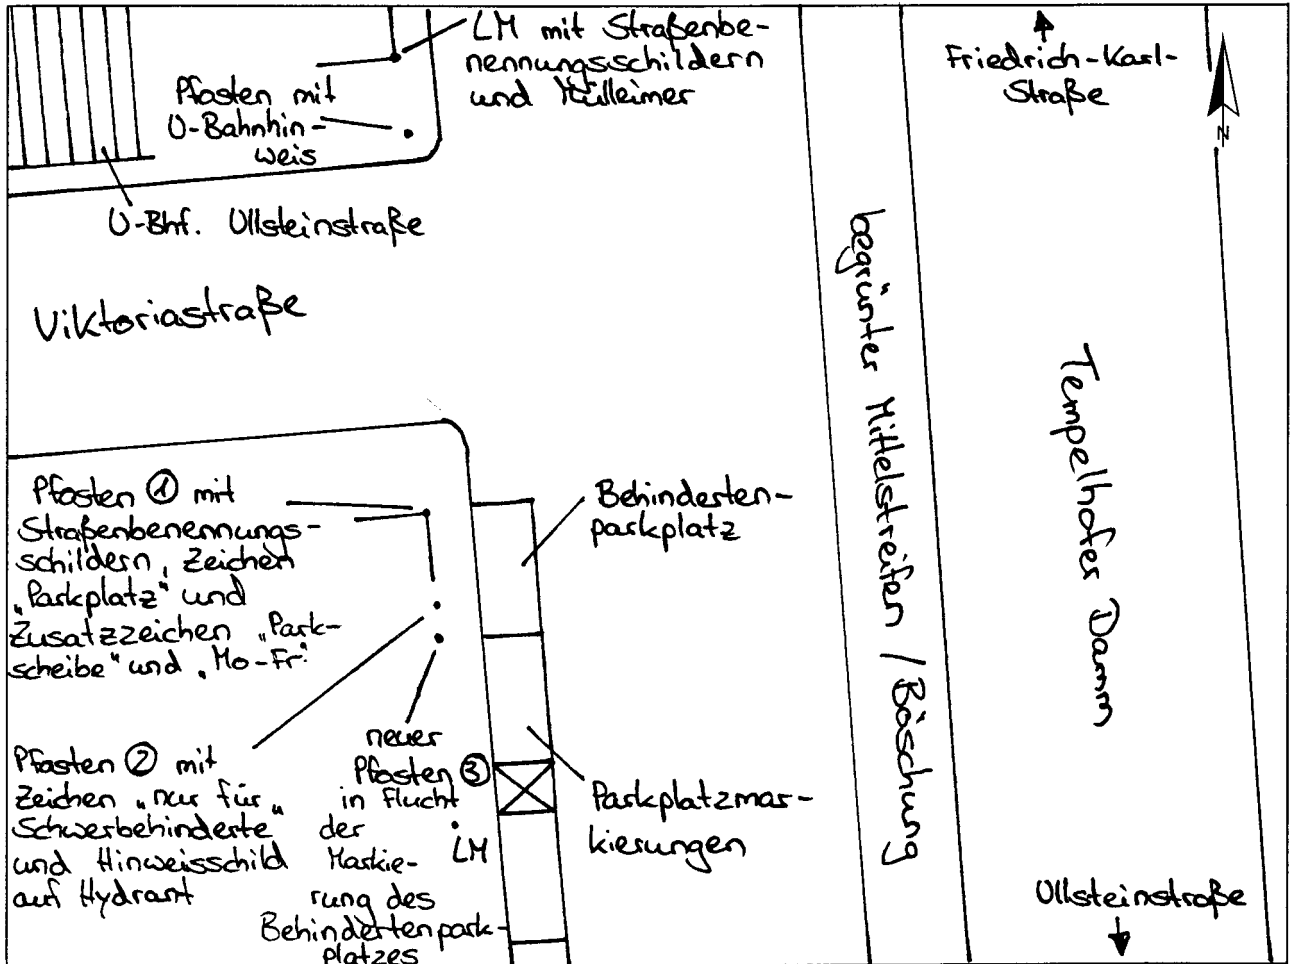 LM mit Straßenbe-
nennungsschildern
und Mülleimer
Pfosten mit
U-Bahnhin-
weis
U-Bhf. Ullsteinstraße
Friedrich-Karl-
Straße
N
Viktoriastraße
begrünter Mittelstreifen / Böschung
Tempelhofer Damm
Pfosten ① mit
Straßenbenennungs-
schildern, Zeichen
„Parkplatz" und
Zusatzzeichen „Park-
scheibe" und „Mo-Fr."
Behinderten-
parkplatz
Pfosten ② mit
Zeichen „nur für
Schwerbehinderte"
und Hinweisschild
auf Hydrant
neuer
Pfosten ③
in Flucht
der
Markie-
rung des
Behindertenpark-
platzes
LM
Parkplatzmar-
kierungen
Ullsteinstraße